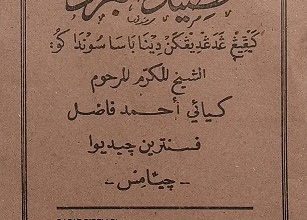 كڠيڠ غدغديڠكن دينا باسا سوندا كو:
الشيخ المكرم المرحوم
كيائي أحمد فاضل
فسنترين چيديوا
- چيامس -